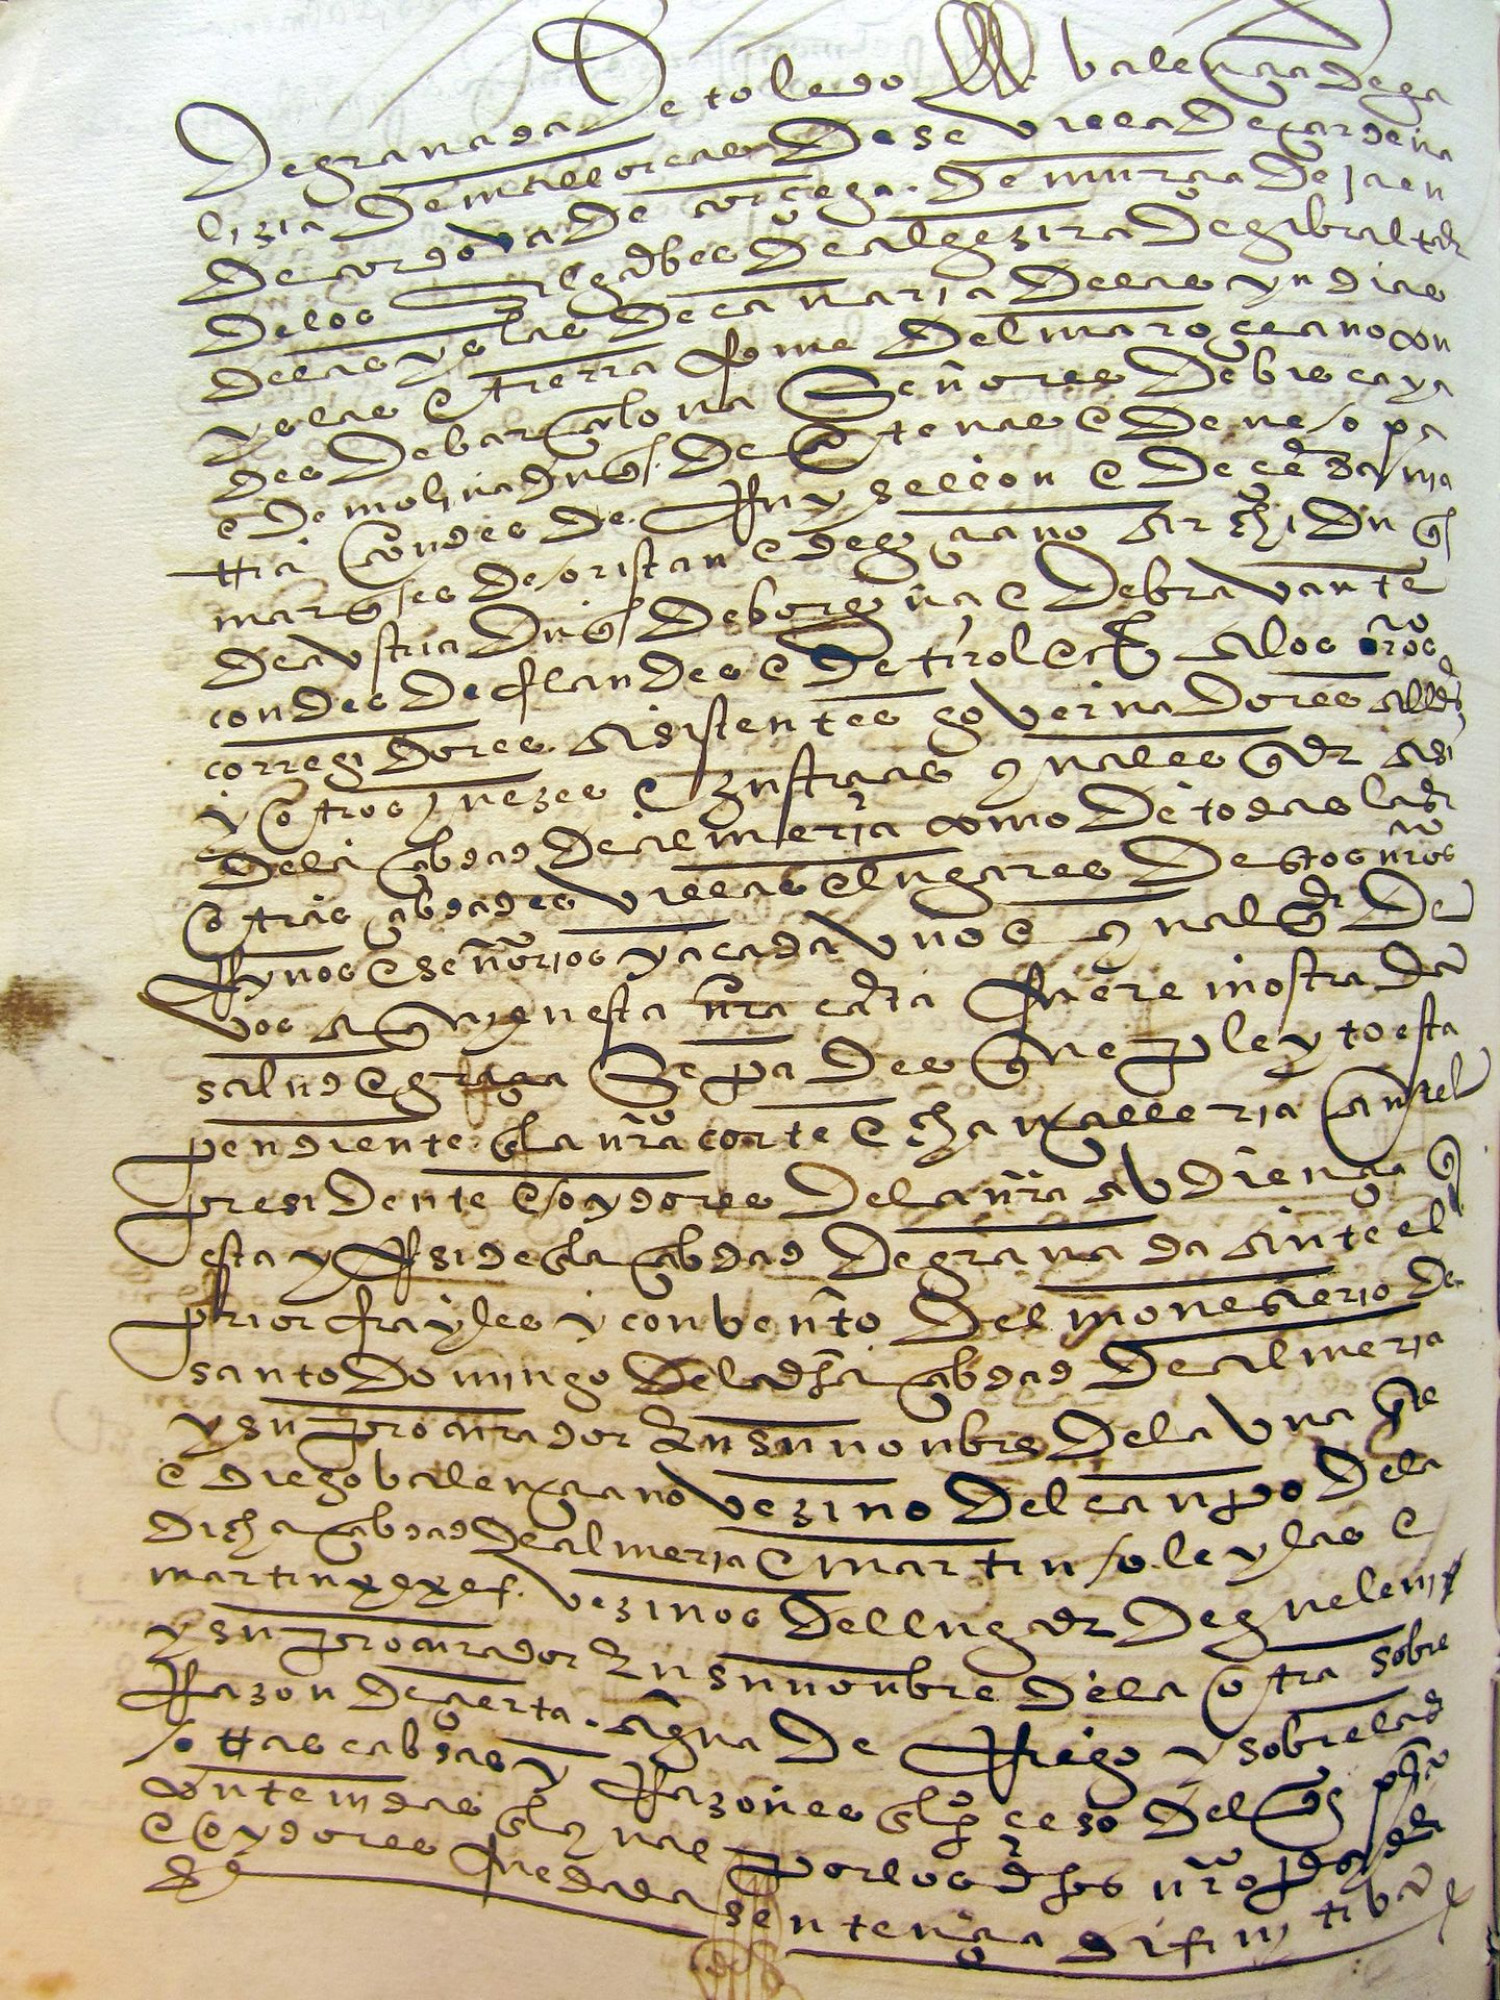 De granada De toledo De valençia De ga
lizia De mallorcas De sevilla De çardeña
De cordova De corçega De murçia De jaen
De los algarbes De algezira De gibraltar
De las yslas De canaria De las yndias
yslas e tierra firme Del mar oçeano con
des De barçelona Señores De biscaya
e De molina duqs De atenas e De neopa
tria Condes De Ruysellon e De çerdania
marqses De oristan e De goçiano Archiduqs
De avstria Duqs De borgoña e De bravante
condes De flandes e De tirol etc A los nros
corregidores Asistentes governadores allds
y otros juezes e justiçias qualesqer Asi
De la çibdad De almeria como De todas las
otras çibdades villas e lugares Destos nros
Reynos e señorios y a cada vno e qualqer De
vos a quyen esta nra carta fuere mostrada
salud e graçia Sepades que pleyto esta
pendiente en la nra corte e chançilleria ante el
presidente e oydores De la nra avdiençia q
esta y Reside en la çibdad De granada Ante el
prior frayles y convento Del monesterio De
santo Domingo De la dha çibdad De almeria
y su procurador En su nonbre De la vna pte
e diego valençiano vezino Del canpo De la
dicha çibdad De almeria e martin soleylas e
martin vezinos Del lugar De guelemy
y su procurador En su nonbre De la otra sobre
Razon De çierta agua De Riego y sobre las
otras cabsas y Razones en el proçeso Del qs pto
contenidas en el qual por los dhos nro presydte
e oydores fue dada sentençia difinytiba